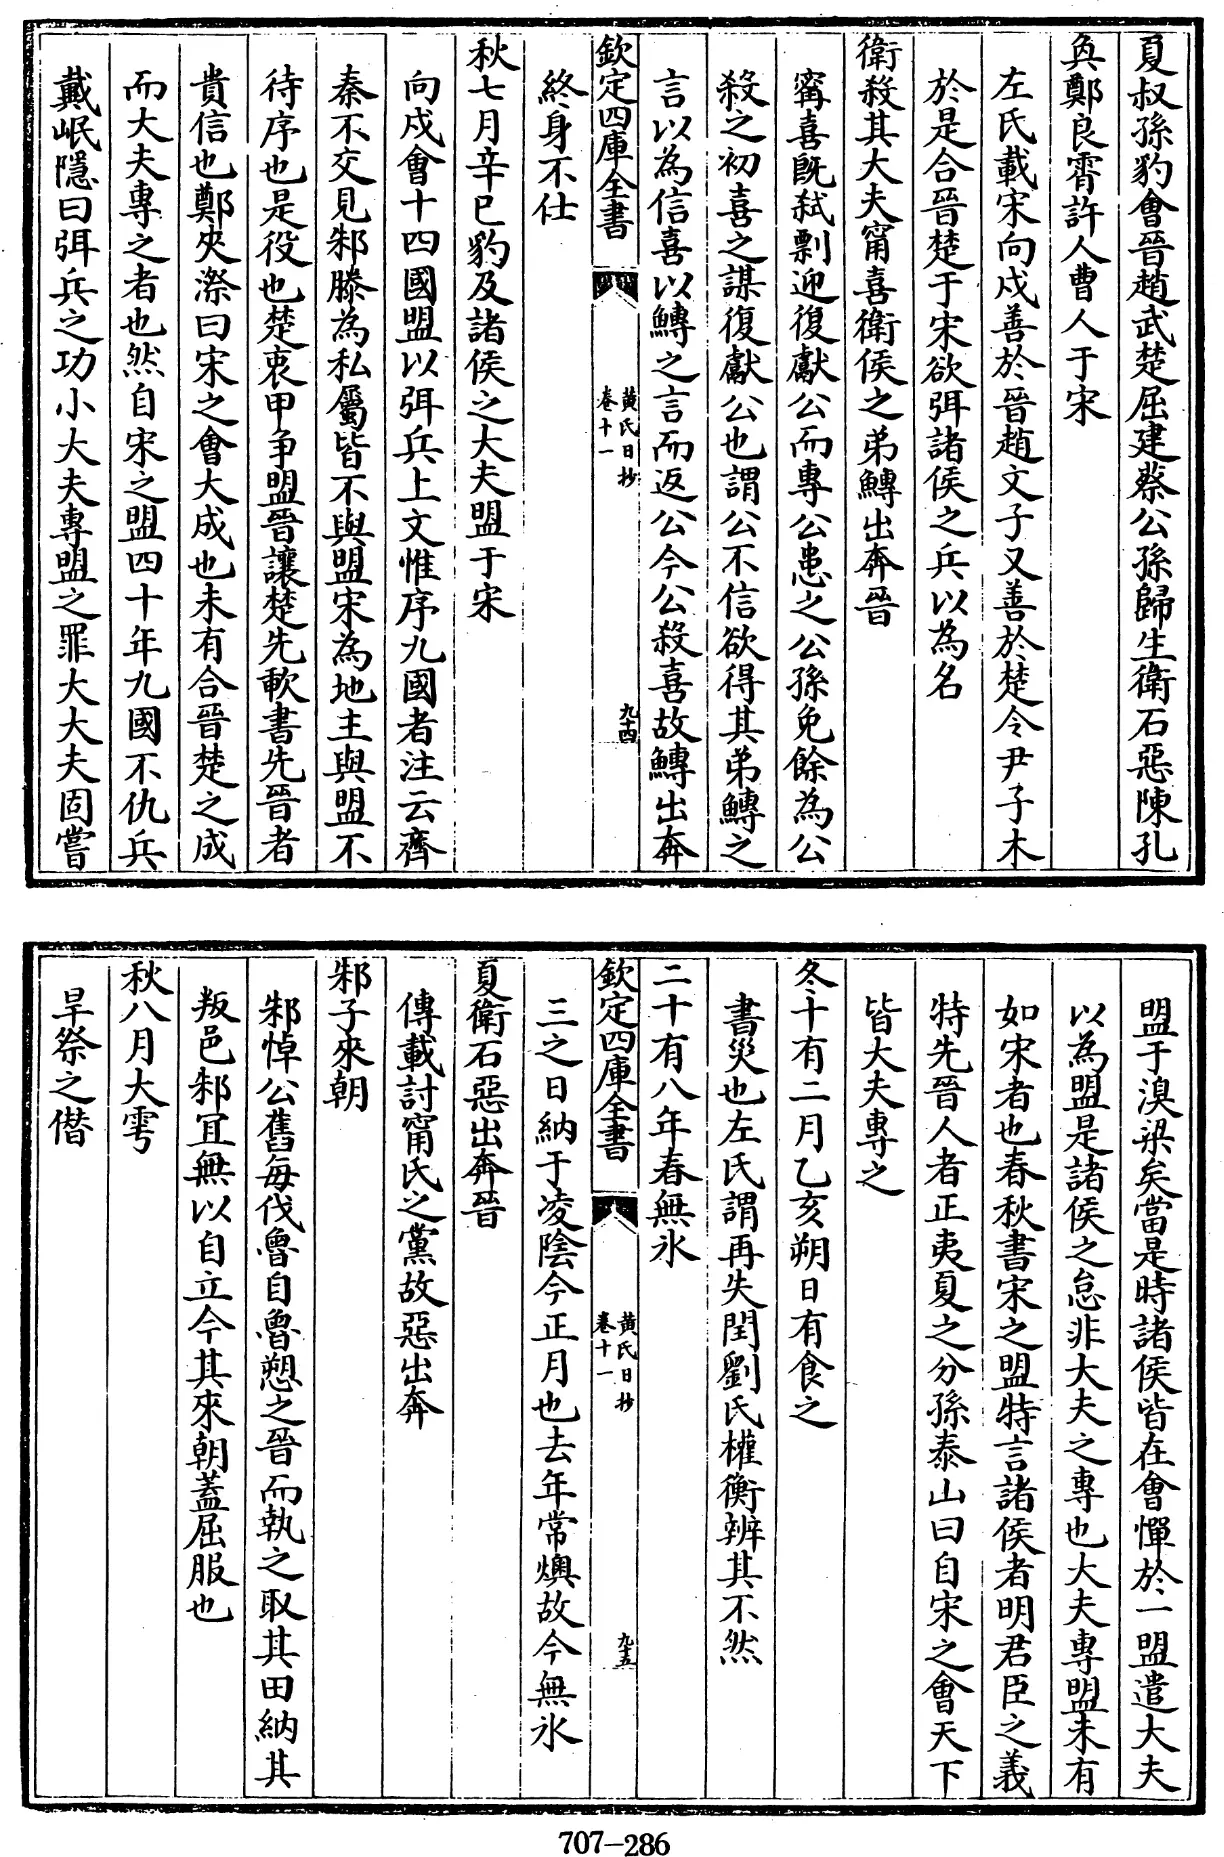 夏叔孫豹會晉趙武楚屈建蔡公孫歸生衛石惡陳孔
奐鄭良霄許人曹人于宋
左氏載宋向戌善於晉趙文子又善於楚令尹子木
於是合晉楚于宋欲弭諸侯之兵以為名
衛殺其大夫甯喜衛侯之弟鱄出奔晉
甯喜既弑剽迎復獻公而專公患之公孫免餘為公
殺之初喜之謀復獻公也謂公不信欲得其弟鱄之
言以為信喜以鱄之言而返公今公殺喜故鱄出奔
欽定四庫全書
黃氏日抄
卷十一
九十四
終身不仕
秋七月辛巳豹及諸侯之大夫盟于宋
向戌會十四國盟以弭兵上文惟序九國者注云齊
秦不交見邾滕為私屬皆不與盟宋為地主與盟不
待序也是役也楚衷甲爭盟晉讓楚先歃書先晉者
貴信也鄭夾漈曰宋之會大成也未有合晉楚之成
而大夫專之者也然自宋之盟四十年九國不仇兵
戴岷隱曰弭兵之功小大夫專盟之罪大大夫固嘗
盟于溴梁矣當是時諸侯皆在會憚於一盟遣大夫
以為盟是諸侯之怠非大夫之專也大夫專盟未有
如宋者也春秋書宋之盟特言諸侯者明君臣之義
特先晉人者正夷夏之分孫泰山曰自宋之會天下
皆大夫專之
冬十有二月乙亥朔日有食之
書災也左氏謂再失閏劉氏權衡辨其不然
二十有八年春無氷
欽定四庫全書
黃氏日抄
卷十一
九十五
三之日納于凌陰今正月也去年常燠故今無氷
夏衛石惡出奔晉
傳載討甯氏之黨故惡出奔
邾子來朝
邾悼公舊每伐魯自魯愬之晉而執之取其田納其
叛邑邾冝無以自立今其來朝蓋屈服也
秋八月大雩
旱祭之僭
707-286